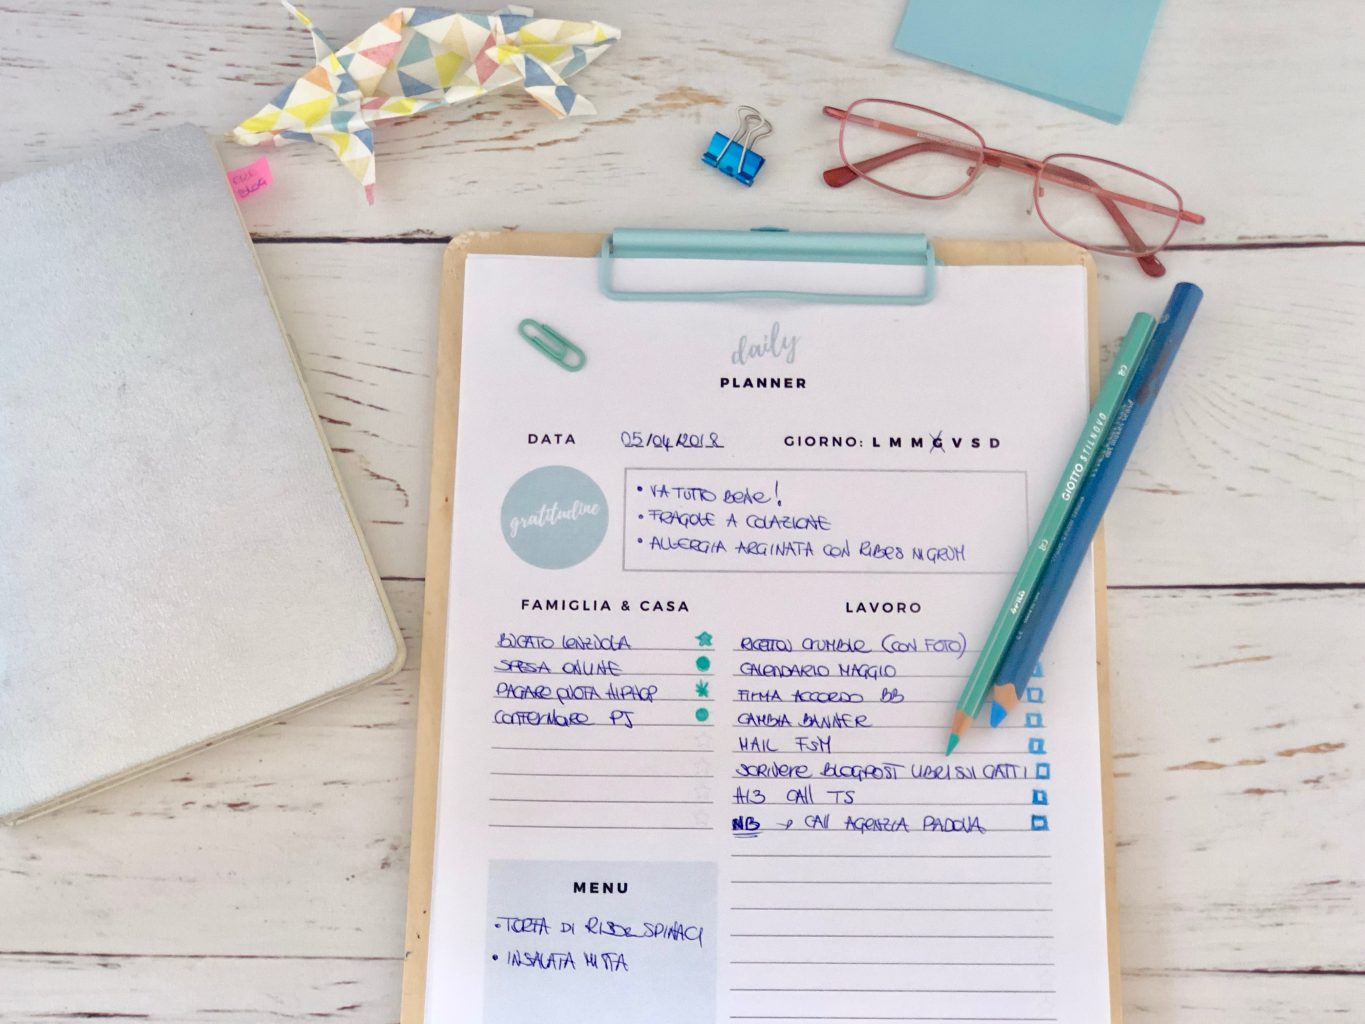 CAL BLOG
daily
PLANNER
DATA 05/04/2018 GIORNO: L M M G V S D
gratitudine
• VA TUTTO BENE!
• FRAGOLE A COLAZIONE
• ALLERGIA ARGINATA CON RIBES NIGRUM
FAMIGLIA & CASA
BUCATO LENZUOLA
SPESA ONLINE
PAGARE QUOTA HIPHOP
CONFERMARE PJ
LAVORO
CRUMBLE (CON FOTO)
CALENDARIO MAGGIO
FIRMA ACCORDO BB
CAMBIA BANNER
MAIL FSM
SCRIVERE BLOGPOST LIBRI SUI GATTI
H13 CALL TS
NB → CALL AGENZIA PADOVA
MENU
• TORTA DI RISO E SPINACI
• INSALATA MISTA
GIOTTO STILNOVO